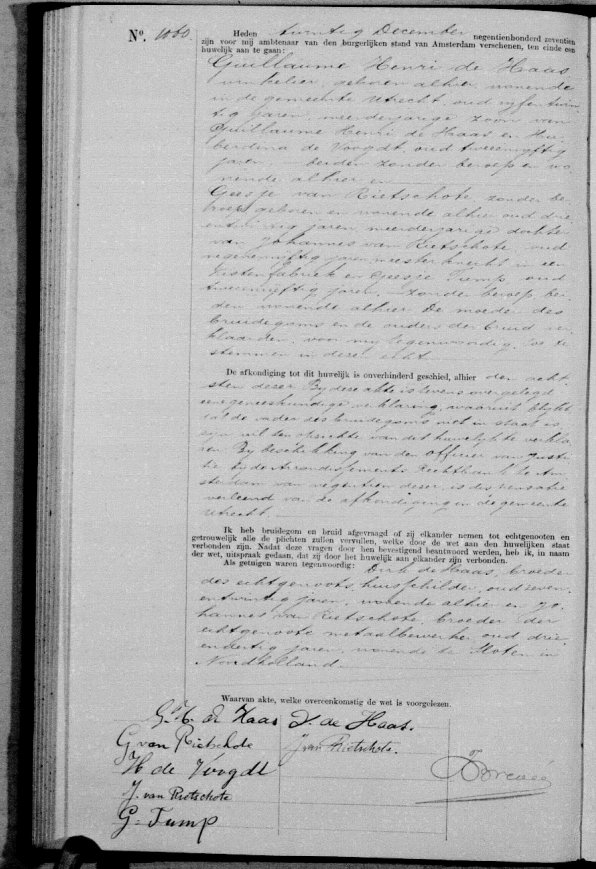 No. 1060. Heden twintig December negentienhonderd zeventien
zijn voor mij ambtenaar van den burgerlijken stand van Amsterdam verschenen, ten einde een
huwelijk aan te gaan:
Guillaume Henri de Haas,
winkelier, geboren alhier, wonende
in de gemeente Utrecht, oud vijfentwin-
tig jaren, meerderjarige zoon van
Guillaume Henri de Haas en Hu-
berdina de Voogdt, oud tweeenvijftig
jaren, beiden zonder beroep en wo-
nende alhier en
Geesje van Rietschote, zonder be-
roep, geboren en wonende alhier oud drie
entwintig jaren, meerderjarige dochter
van Johannes van Rietschote, oud
negenenvijftig jaren, meesterknecht in een
kistenfabriek en Geesje Tump, oud
tweeenvijftig jaren, zonder beroep bei-
den wonende alhier. De moeder des
bruidegoms en de ouders der bruid ver-
klaarden, voor mij tegenwoordig, toe te
stemmen in deze echt.
De afkondiging tot dit huwelijk is onverhinderd geschied, alhier den acht-
sten dezer. Bij deze akte is tevens overgelegd
eene geneeskundige verklaring, waaruit blijkt
dat de vader des bruidegoms niet in staat is
zijn wil ten opzichte van dit huwelijk te verkla-
ren. Bij beschikking van den Officier van Justi-
tie bij de Arrondissements Rechtbank te Am-
sterdam van negentien dezer, is dispensatie
verleend van de afkondiging in de gemeente
Utrecht.
Ik heb bruidegom en bruid afgevraagd of zij elkander nemen tot echtgenooten en
getrouwelijk alle de plichten zullen vervullen, welke door de wet aan den huwelijken staat
verbonden zijn. Nadat deze vragen door hen bevestigend beantwoord werden, heb ik, in naam
der wet, uitspraak gedaan, dat zij door het huwelijk aan elkander zijn verbonden.
Als getuigen waren tegenwoordig: Dirk de Haas, broeder
des echtgenoots, huisschilder, oud zeven-
entwintig jaren, wonende alhier en Jo-
hannes van Rietschote, broeder der
echtgenoote metaalbewerker oud drie
endertig jaren, wonende te Sloten in
Noordholland.
Waarvan akte, welke overeenkomstig de wet is voorgelezen.
G. H. de Haas D. de Haas.
G van Rietschote J van Rietschote.
H de Voogdt
J. van Rietschote
G. Tump